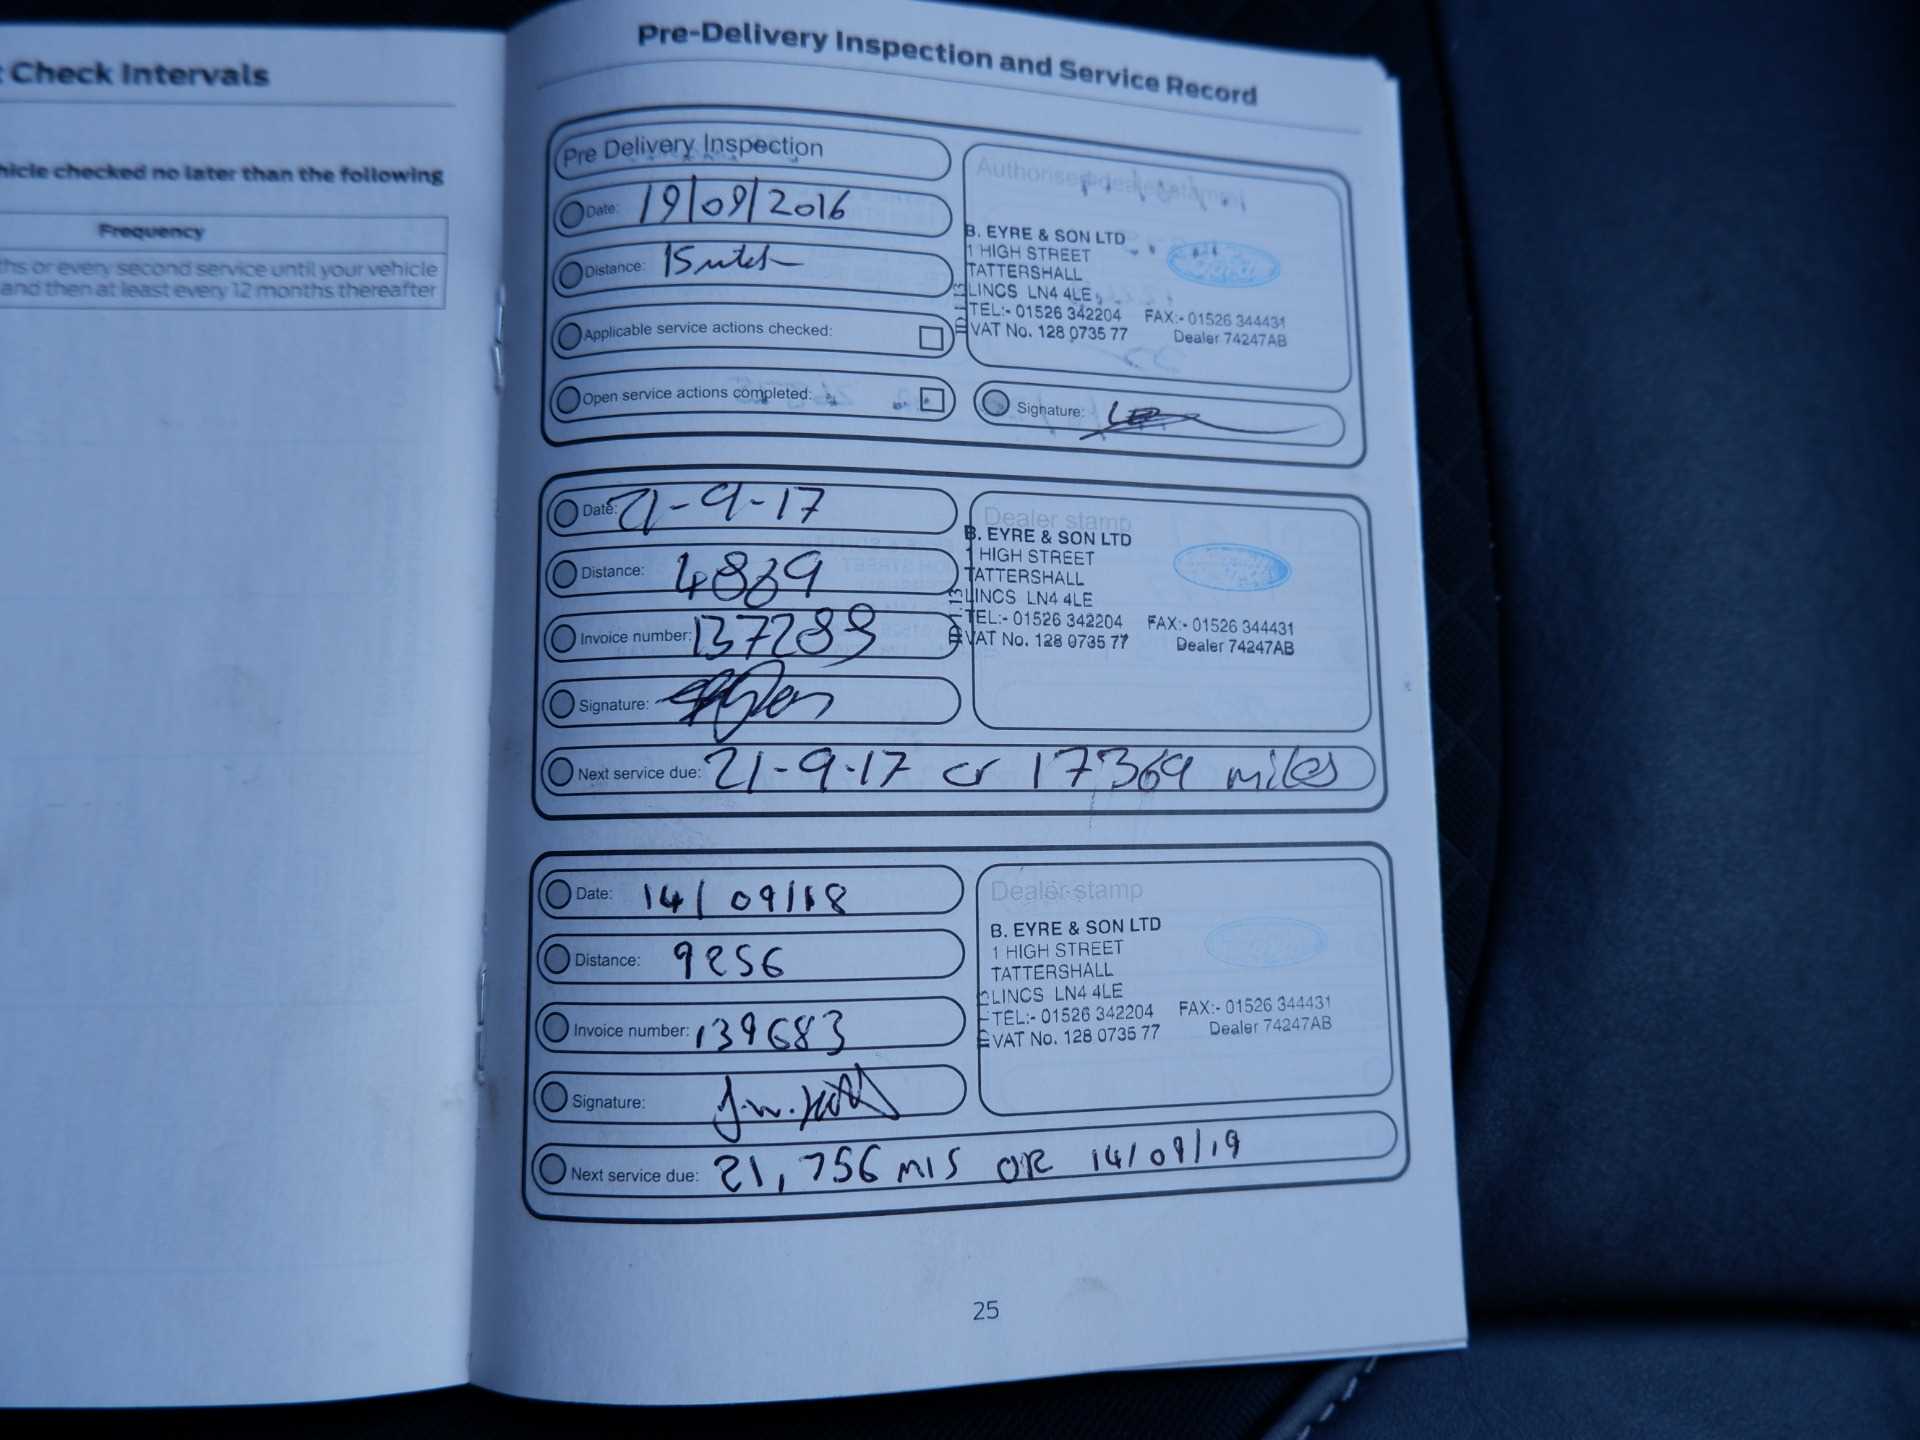 t Check Intervals
hicle checked no later than the following
Frequency
ths or every second service until your vehicle
and then at least every 12 months thereafter
Pre-Delivery Inspection and Service Record
Pre Delivery Inspection
Date: 19/09/2016
Distance: 15
Applicable service actions checked:
Open service actions completed:
Authorised dealer stamp
B. EYRE & SON LTD
1 HIGH STREET
TATTERSHALL
LINCS LN4 4LE
TEL:- 01526 342204 FAX:- 01526 344431
VAT No. 128 0735 77 Dealer 74247AB
Signature:
Date: 21-9-17
Distance: 4869
Invoice number: 137289
Signature:
Next service due: 21-9-17 or 17369 miles
Dealer stamp
B. EYRE & SON LTD
1 HIGH STREET
TATTERSHALL
LINCS LN4 4LE
TEL:- 01526 342204 FAX:- 01526 344431
VAT No. 128 0735 77 Dealer 74247AB
Date: 14/09/18
Distance: 9256
Invoice number: 139683
Signature:
Next service due: 21,756 MIS OR 14/09/19
Dealer stamp
B. EYRE & SON LTD
1 HIGH STREET
TATTERSHALL
LINCS LN4 4LE
TEL:- 01526 342204 FAX:- 01526 344431
VAT No. 128 0735 77 Dealer 74247AB
25